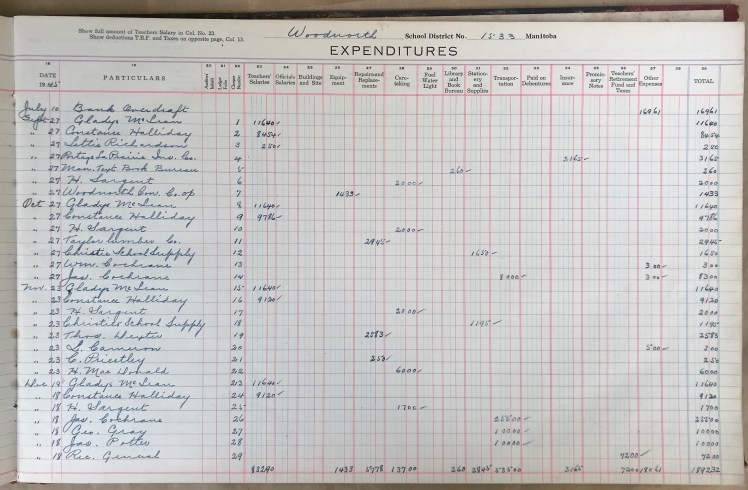 Show full amount of Teachers Salary in Col. No. 23. Woodnorth School District No. 1533 Manitoba
Show deductions T.R.F. and Taxes on opposite page, Col. 13.
EXPENDITURES
DATE 1945 PARTICULARS Cheque Number Teachers' Salaries Officials Salaries Buildings and Site Equipment Repairs and Replacements Caretaking Fuel Water Light Library and Book Bureau Stationery and Supplies Transportation Paid on Debentures Insurance Promissory Notes Teachers' Retirement Fund and Taxes Other Expenses TOTAL
July 10 Bank Overdraft 16961 16961
Sept 27 Gladys McLean 1 11640 ✓ 11640
" 27 Constance Halliday 2 8454 ✓ 8454
" 27 Lettie Richardson 3 250 ✓ 250
" 27 Portage La Prairie Ins. Co. 4 3165 ✓ 3165
" 27 Man. Text Book Bureau 5 260 ✓ 260
" 27 H. Sargent 6 2000 ✓ 2000
" 27 Woodnorth Con. Co. op 7 1433 ✓ 1433
Oct 27 Gladys McLean 8 11640 ✓ 11640
" 27 Constance Halliday 9 9786 ✓ 9786
" 27 H. Sargent 10 2000 ✓ 2000
" 27 Taylor Lumber Co. 11 2945 ✓ 2945
" 27 Christie School Supply 12 1650 ✓ 1650
" 27 Wm. Cochrane 13 300 ✓ 300
" 27 Jas. Cochrane 14 8000 ✓ 300 ✓ 8300
Nov. 23 Gladys McLean 15 11640 ✓ 11640
" 23 Constance Halliday 16 9120 ✓ 9120
" 23 H. Sargent 17 2000 ✓ 2000
" 23 Christies School Supply 18 1195 ✓ 1195
" 23 Thos. Dexter 19 2583 ✓ 2583
" 23 L. Cameron 20 500 ✓ 500
" 23 C. Priestley 21 250 ✓ 250
" 23 H. Mac Donald 22 6000 ✓ 6000
Dec 18 Gladys McLean 23 11640 ✓ 11640
" 18 Constance Halliday 24 9120 ✓ 9120
" 18 H. Sargent 25 1700 ✓ 1700
" 18 Jas. Cochrane 26 25500 ✓ 25500
" 18 Geo. Gray 27 10000 ✓ 10000
" 18 Jas. Potter 28 10000 ✓ 10000
" 18 Rec. General 29 7200 ✓ 7200
83290 1433 5778 13700 260 2845 53500 3165 7200 18061 189232